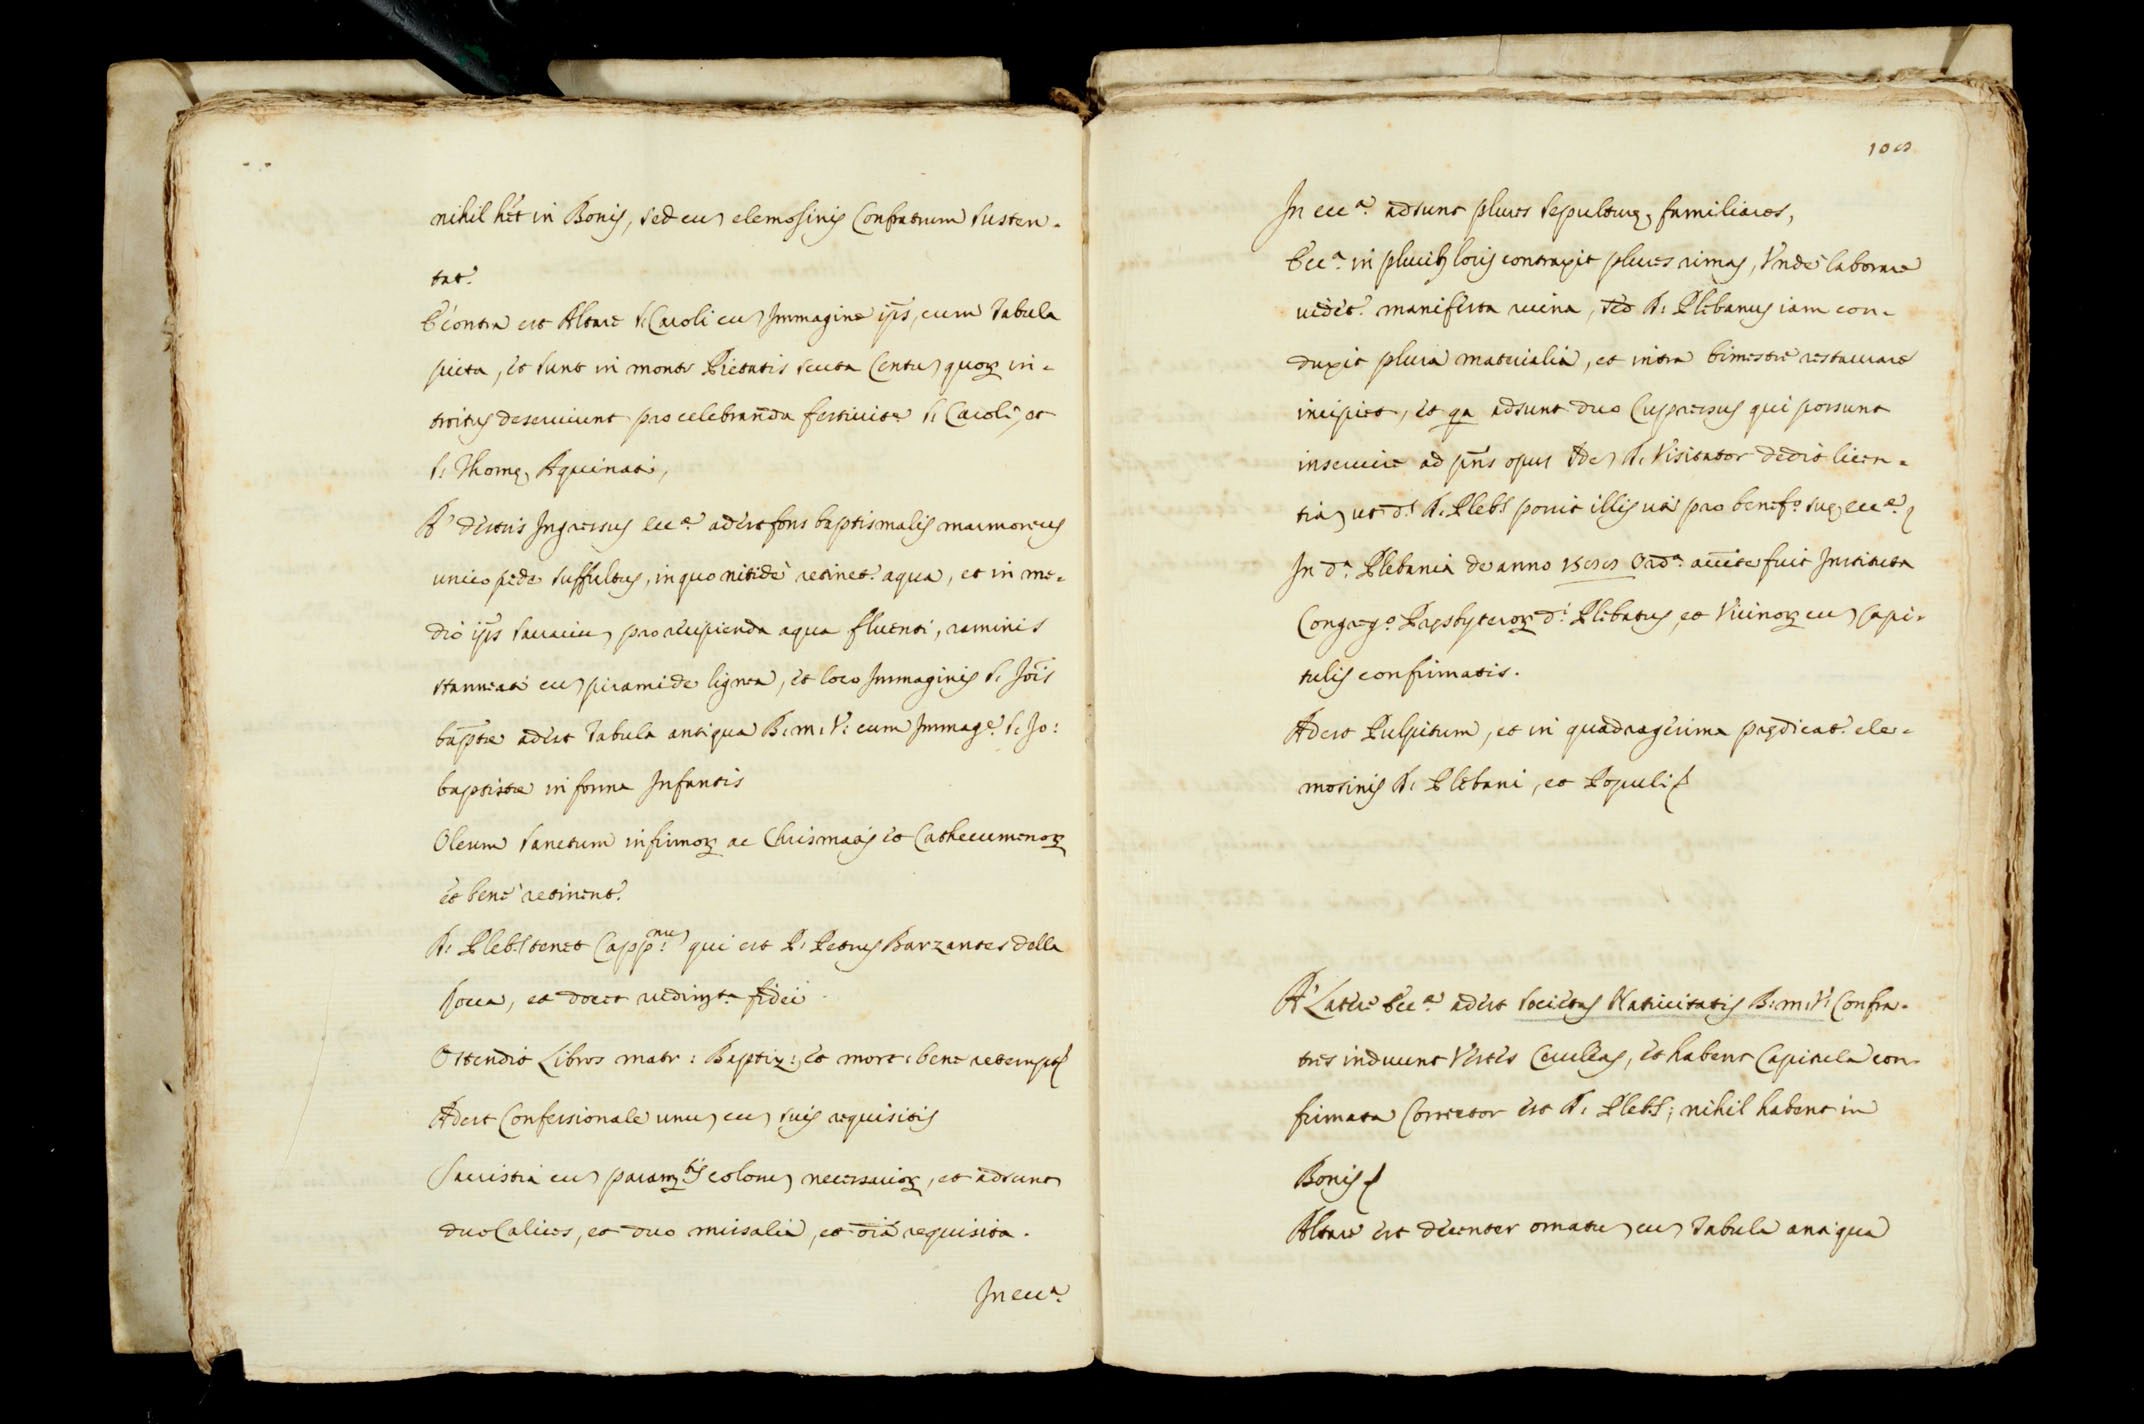 nihil hēt in Bonis, sed cū elemosinis Confratrum susten-
tat.r
E contra est Altare S. Caroli cū Immagine ipīs, cum Tabula
picta, et sunt in monte Pietatis scuta Centū quoq in-
troitus deserviunt pro celebranda festivit.e S. Caroli, et
S. Thomę Aquinati,
A' dextris Ingressus ecc.ę adest fons baptismalis marmoreus
unico pede suffultus, in quo nitidè retinet.r aqua, et in me-
dio ipīs sacrariū pro recipienda aqua fluenti, raminis
stanneati cū piramide lignea, et loco Immaginis S. Joīs
bapt̄e adest Tabula antiqua B: M: V: cum Immag.e S. Jo:
baptistæ in forma Infantis
Oleum sanctum infirmoꝝ ac Chrismatis et Cathecumenoꝝ
et benè retinent.r
R: Pleb.s tenet Capp:nū qui est P. Petrus Barzantes della
Rocca, et docet rudimęta fidei
Ostendit Libros matr: Baptiz: et mort: bene retemptos
Adest Confessionale unū cū suis requisitis
Sacristia cū paramętis colorū necessarioꝝ, et adsunt
duo Calices, et duo missalia, et oīa requisita.
In ecc.a
100
In ecc.a adsunt plures sepulturę familiares,
Ecc.a in pluribꝫ locis contraxit plures rimas, Unde laborare
videt.r manifesta ruina, sed R: Plebanus iam con-
duxit plura materialia, et intra bimestre restaurare
incipiet, et qa adsunt duo Cupressus qui possunt
inservire ad pn̄s opus R: Visitator dedit licen-
tiā ut d.s R. Pleb.s possit illis uti pro benef.o suę ecc.ę
In d.a Plebania de anno Ord.a aucte fuit Instituta
Congreg.o Presbyteroꝝ d.i Plebatus, et Vicinoꝝ cū Capi-
tulis confirmatis.
Adest Pulpitum, et in quadragesima prędicat.r ele-
mosinis R. Plebani, et Populi
A' Latere Ecc.ę adest societas Nativitatis B: M: V: Confra-
tres induunt Vestes Cerulęas, et habent Capitula con-
firmata Corrector est R. Pleb.s; nihil habent in
Bonis
Altare est decenter ornatū cū Tabula antiqua